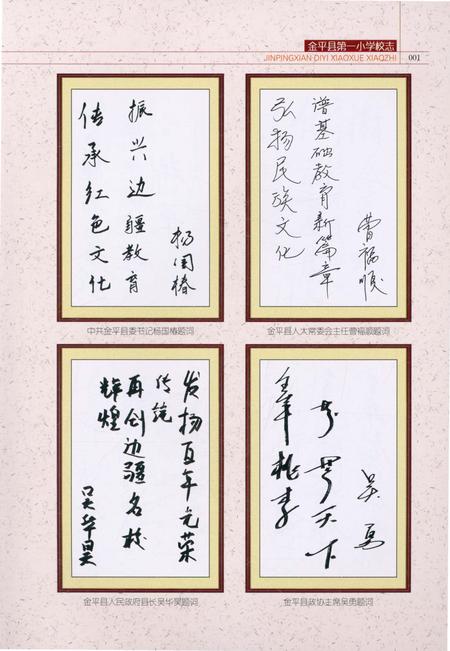 金平县第一小学校志
JINPINGXIAN DIYI XIAOXUE XIAOZHI
001
振兴边疆教育
传承红色文化
杨国椿
中共金平县委书记杨国椿题词
谱基础教育新篇章
弘扬民族文化
曹福顺
金平县人大常委会主任曹福顺题词
发扬百年光荣
传统
再创边疆名校
辉煌
吴华昊
金平县人民政府县长吴华昊题词
天下
桃李
吴勇
金平县政协主席吴勇题词